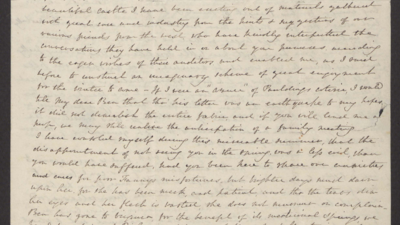 beautiful castle I have been erecting out of materials gathered
with great care and industry from the hints & suggestions of our
various friends from the west, who have kindly interpreted the
conversations they have held in or about your presence according
to the eager wishes of their auditors and enabled me, as I must
before to construct an imaginary scheme of great enjoyment
for the winter to come – If I were an owner of
tell my dear Bren that tho his letter was an earthquake to my hopes
it did not demolish the entire fabric, and if you will lend me a
prop, we may still realise the anticipation of a family meeting
I have consoled myself during this miserable summer, that the
disappointment of not seeing you in the spring was a less evil than
you would have suffered, had you been here to share our anxieties
and ours for poor misfortunes, but brighter days must dawn
upon her for she has been meek and patient, and tho the tears dim
her eyes and her flesh is wasted she does not murmur or complain.
Bren has gone to for the benefit of its medicinal springs we